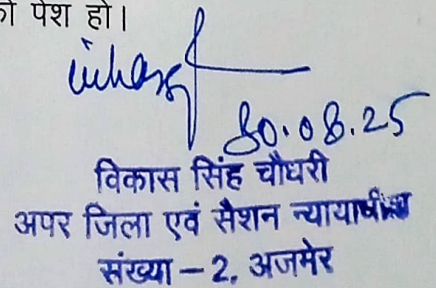 पेश हो।
30.08.25
विकास सिंह चौधरी
अपर जिला एवं सैशन न्यायाधीश
संख्या – 2, अजमेर